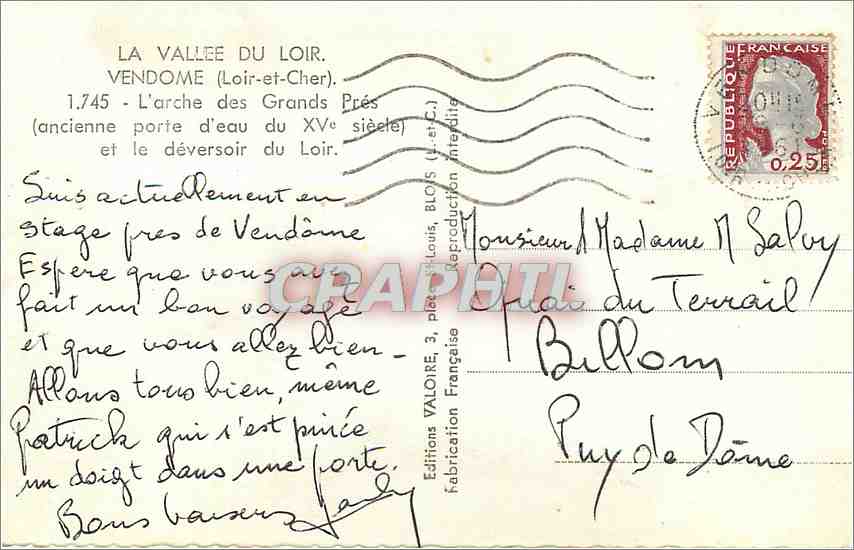 LA VALLEE DU LOIR.
VENDOME (Loir-et-Cher).
1.745 - L'arche des Grands Prés
(ancienne porte d'eau du XVe siècle)
et le déversoir du Loir.
Suis actuellement en
stage pres de Vendôme
Espère que vous avez
fait un bon voyage
et que vous allez bien -
Allons tous bien, même
Patrick qui s'est pincé
un doigt dans une porte.
Bons baisers
Editions VALOIRE, 3, place St-Louis, BLOIS (L.-et-C.)
Fabrication Française Reproduction interdite
REPUBLIQUE FRANÇAISE
0,25
Monsieur & Madame M Salvy
Quai du Terrail
Billom
Puy de Dôme
CPAPHIL